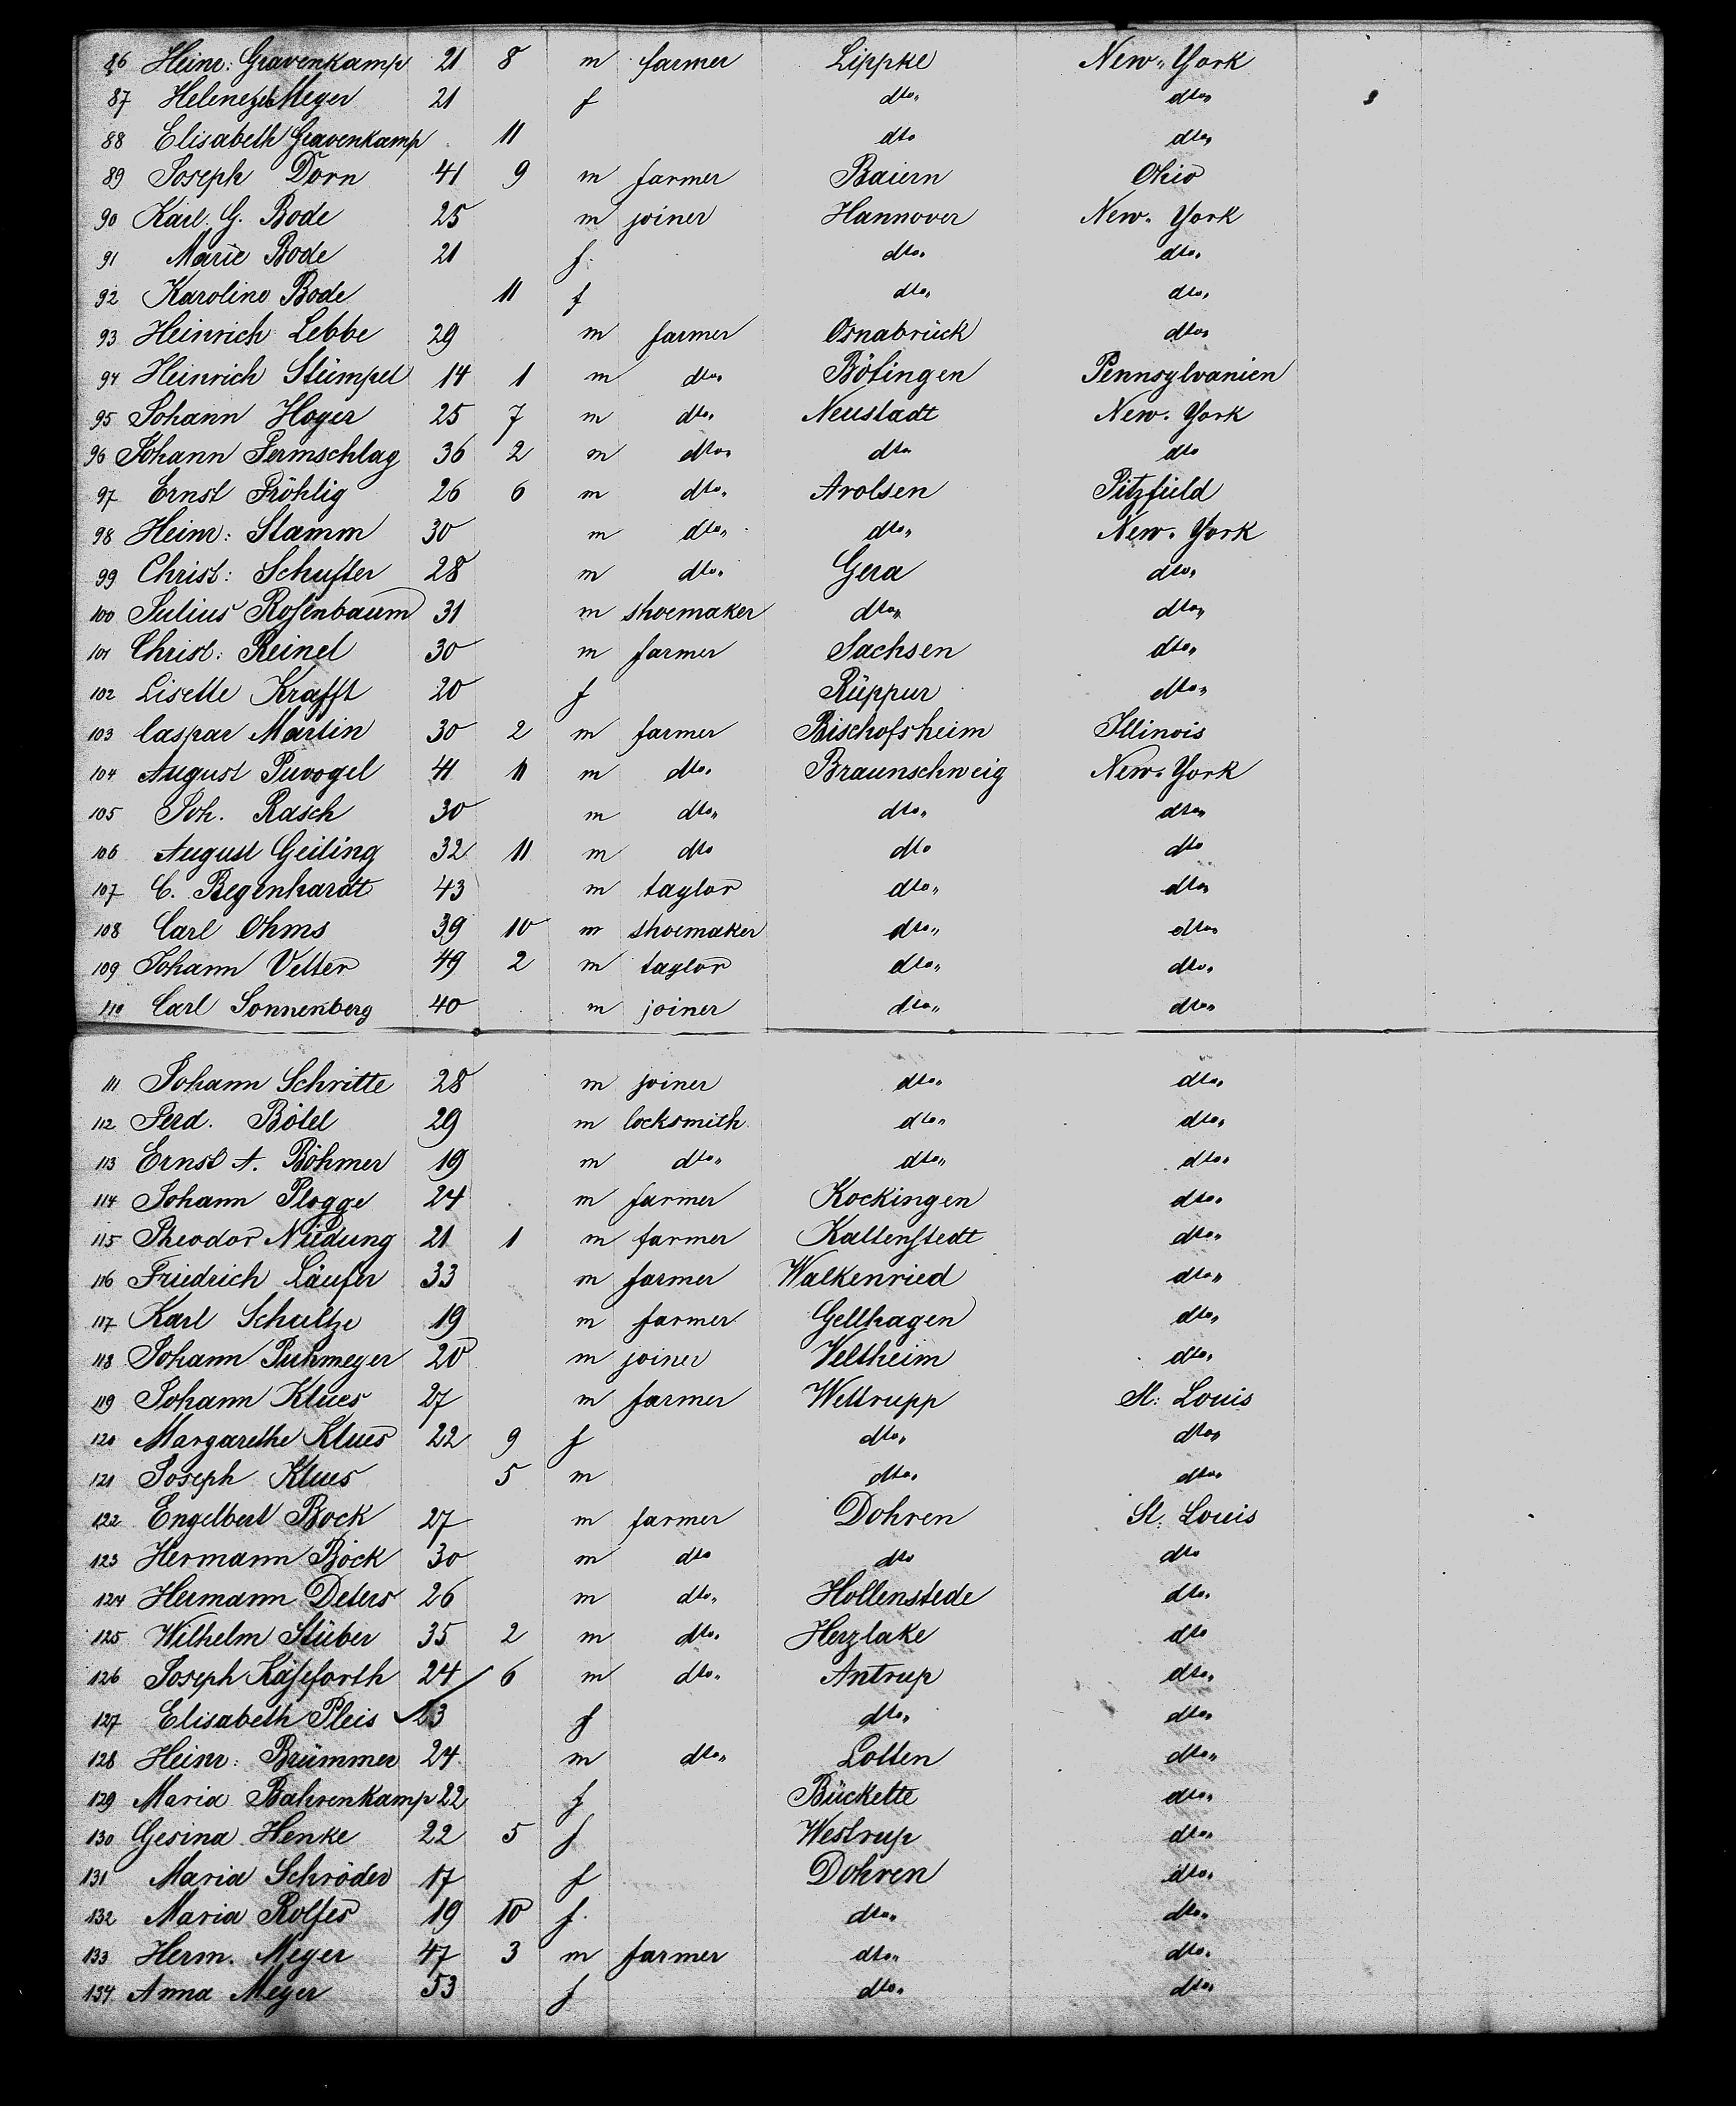 86 Heinr: Gravenkamp 21 8 m farmer Lippke New-York
87 Helene geb Meyer 21 f dto. dto.
88 Elisabeth Gravenkamp 11 dto dto.
89 Joseph Dorn 41 9 m farmer Baiern Ohio
90 Karl. G. Bode 25 m joiner Hannover New-York
91 Marie Bode 21 f. dto. dto.
92 Karoline Bode 11 f dto. dto.
93 Heinrich Lebbe 29 m farmer Osnabrück dto.
94 Heinrich Stümpel 14 1 m dto. Bötingen Pennsylvanien
95 Johann Hoyer 25 7 m dto. Neustadt New-York
96 Johann Fermschlag 36 2 m dto. dto. dto
97 Ernst Fröhlig 26 6 m dto. Arolsen Pitzfield
98 Heinr: Stamm 30 m dto. dto. New-York
99 Christ: Schuster 28 m dto. Gera dto.
100 Julius Rosenbaum 31 m shoemaker dto. dto.
101 Christ: Reinel 30 m farmer Sachsen dto.
102 Lisette Krafft 20 f Rüppur dto.
103 Caspar Martin 30 2 m farmer Bischofsheim Illinois
104 August Puvogel 41 11 m dto. Braunschweig New-York
105 Joh. Rasch 30 m dto. dto. dto.
106 August Geiling 32 11 m dto dto dto
107 C. Begenhardt 43 m taylor dto. dto.
108 Carl Ohms 39 10 m shoemaker dto. dto.
109 Johann Vetter 49 2 m taylor dto. dto.
110 Carl Sonnenberg 40 m joiner dto. dto.
111 Johann Schritte 28 m joiner dto. dto.
112 Ferd. Bötel 29 m locksmith dto. dto.
113 Ernst A. Böhmer 19 m dto. dto. dto.
114 Johann Plogge 24 m farmer Kockingen dto.
115 Theodor Niedung 21 1 m farmer Kattenstedt dto.
116 Friedrich Läufer 33 m farmer Walkenried dto.
117 Karl Schultze 19 m farmer Gellhagen dto.
118 Johann Puhmeyer 20 m joiner Veltheim dto.
119 Johann Klues 27 m farmer Wettrupp St: Louis
120 Margarethe Klues 22 9 f dto. dto.
121 Joseph Klues 5 m dto. dto.
122 Engelbert Bock 27 m farmer Dohren St: Louis
123 Hermann Böck 30 m dto dto dto
124 Hermann Deters 26 m dto. Hollenstede dto.
125 Wilhelm Stüber 35 2 m dto. Herzlake dto
126 Joseph Käseforth 24 6 m dto. Antrup dto.
127 Elisabeth Pleis 23 f dto. dto.
128 Heinr: Brümmer 24 m dto. Lotten dto.
129 Maria Bahrenkamp 22 f Bückette dto.
130 Gesina Henke 22 5 f Westrup dto.
131 Maria Schröder 17 f Dohren dto.
132 Maria Rolfes 19 10 f. dto. dto.
133 Herm. Meyer 47 3 m farmer dto. dto.
134 Anna Meyer 53 f dto. dto.